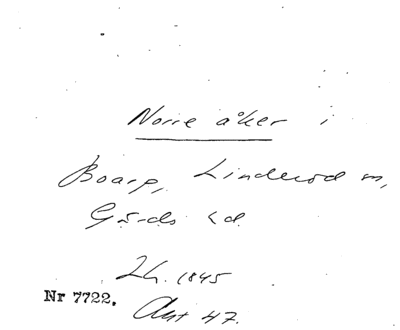 Norre åker i
Boarp, Linderöd sn,
Gärds hd.
Lh. 1845
Nr 7722.
Akt 47.